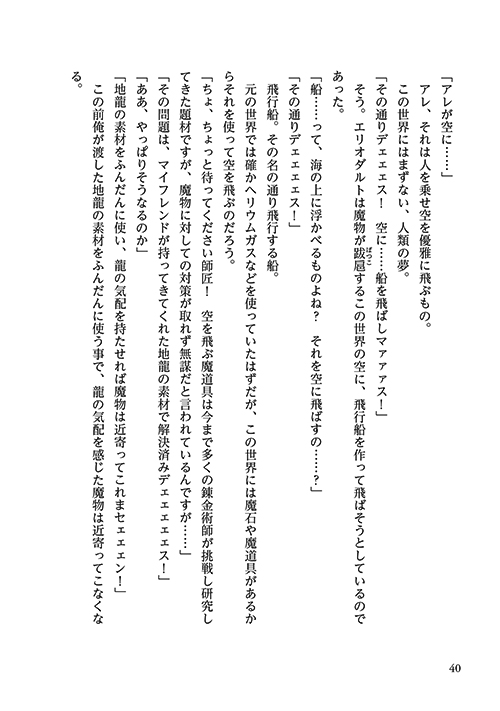 「アレが空に……」
アレ、それは人を乗せ空を優雅に飛ぶもの。
この世界にはまずない、人類の夢。
「その通りデェェェス！　空に……船を飛ばしマァァァス！」
そう。エリオダルトは魔物が跋扈するこの世界の空に、飛行船を作って飛ばそうとしているので
あった。
「船……って、海の上に浮かべるものよね？　それを空に飛ばすの……？」
「その通りデェェェェス！」
飛行船。その名の通り飛行する船。
元の世界では確かヘリウムガスなどを使っていたはずだが、この世界には魔石や魔道具があるか
らそれを使って空を飛ぶのだろう。
「ちょ、ちょっと待ってください師匠！　空を飛ぶ魔道具は今まで多くの錬金術師が挑戦し研究し
てきた題材ですが、魔物に対しての対策が取れず無謀だと言われているんですが……」
「その問題は、マイフレンドが持ってきてくれた地龍の素材で解決済みデェェェェェス！」
「ああ、やっぱりそうなるのか」
「地龍の素材をふんだんに使い、龍の気配を持たせれば魔物は近寄ってこれまセェェェン！」
この前俺が渡した地龍の素材をふんだんに使う事で、龍の気配を感じた魔物は近寄ってこなくな
る。
ばっこ
40